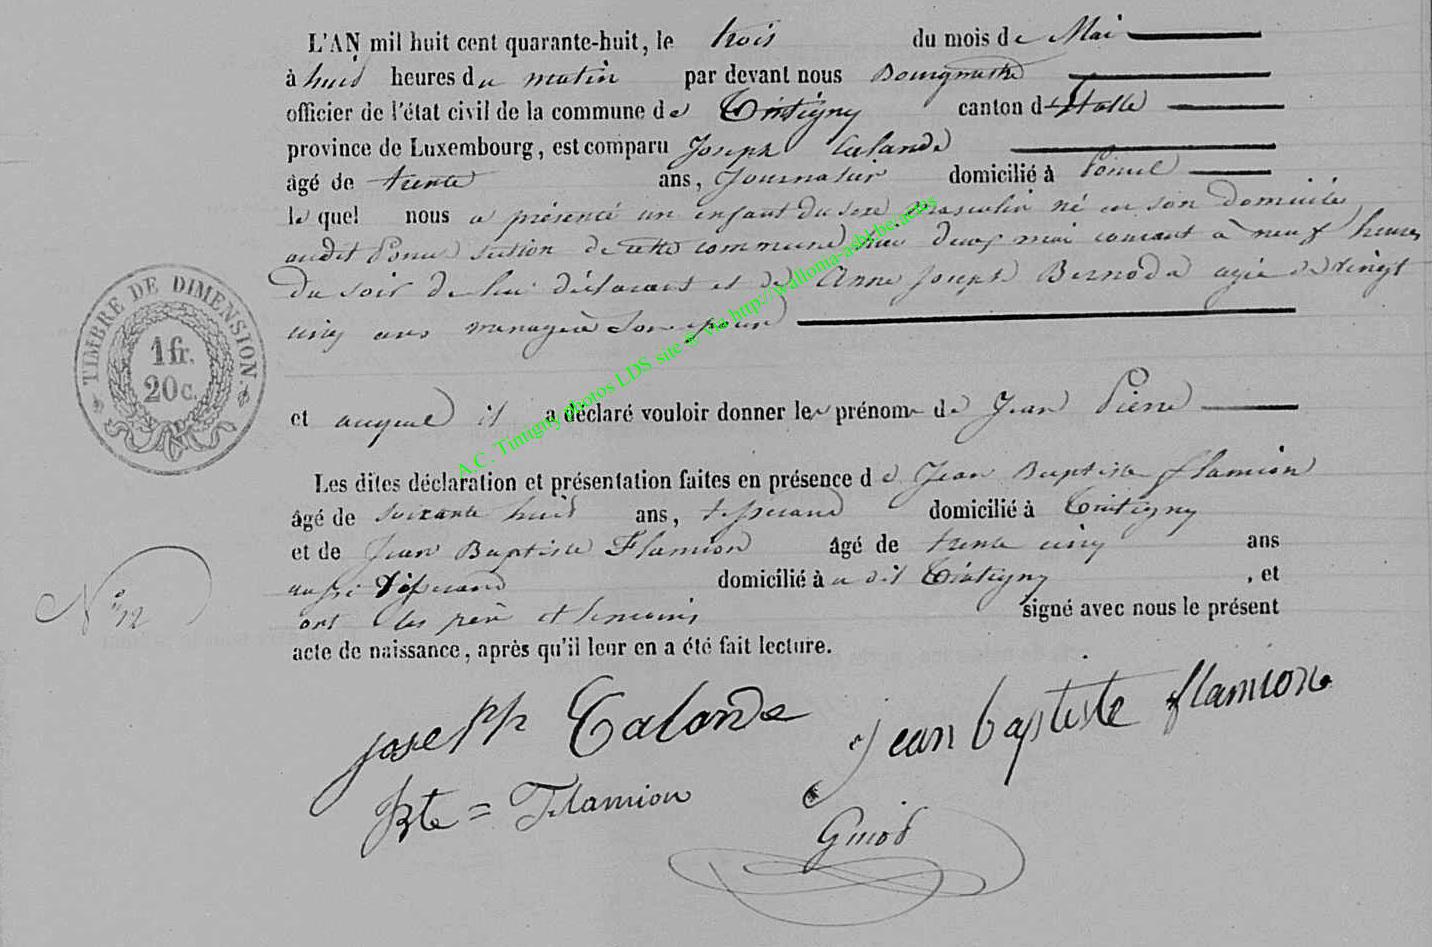 L'AN mil huit cent quarante-huit, le trois du mois de Mai
à huit heures du matin par devant nous Bourgmestre
officier de l'état civil de la commune de Tintigny canton d'Etalle
province de Luxembourg, est comparu Joseph Lalande
âgé de trente ans, Journalier domicilié à Poncel
le quel nous a présenté un enfant du sexe masculin né en son domicile
audit Poncel section de cette commune hier deux mai courant à neuf heures
du soir de lui déclarant et de Anne Joseph Bernode agée de vingt
cinq ans menagère son épouse
et auquel il a déclaré vouloir donner les prénoms de Jean Pierre
Les dites déclaration et présentation faites en présence de Jean Baptiste flamion
âgé de soixante huit ans, tisserand domicilié à Tintigny
et de Jean Baptiste Flamion âgé de trente cinq ans
aussi Tisserand domicilié à u dit Tintigny, et
ont les père et temoins signé avec nous le présent
acte de naissance, après qu'il leur en a été fait lecture.
TIMBRE DE DIMENSION.
1 fr.
20 c.
N° 12
joseph Lalande jean baptiste flamion
JBte = Flamion
A.C. Tintigny photos LDS site & via http://walloma-asbl.be.actes